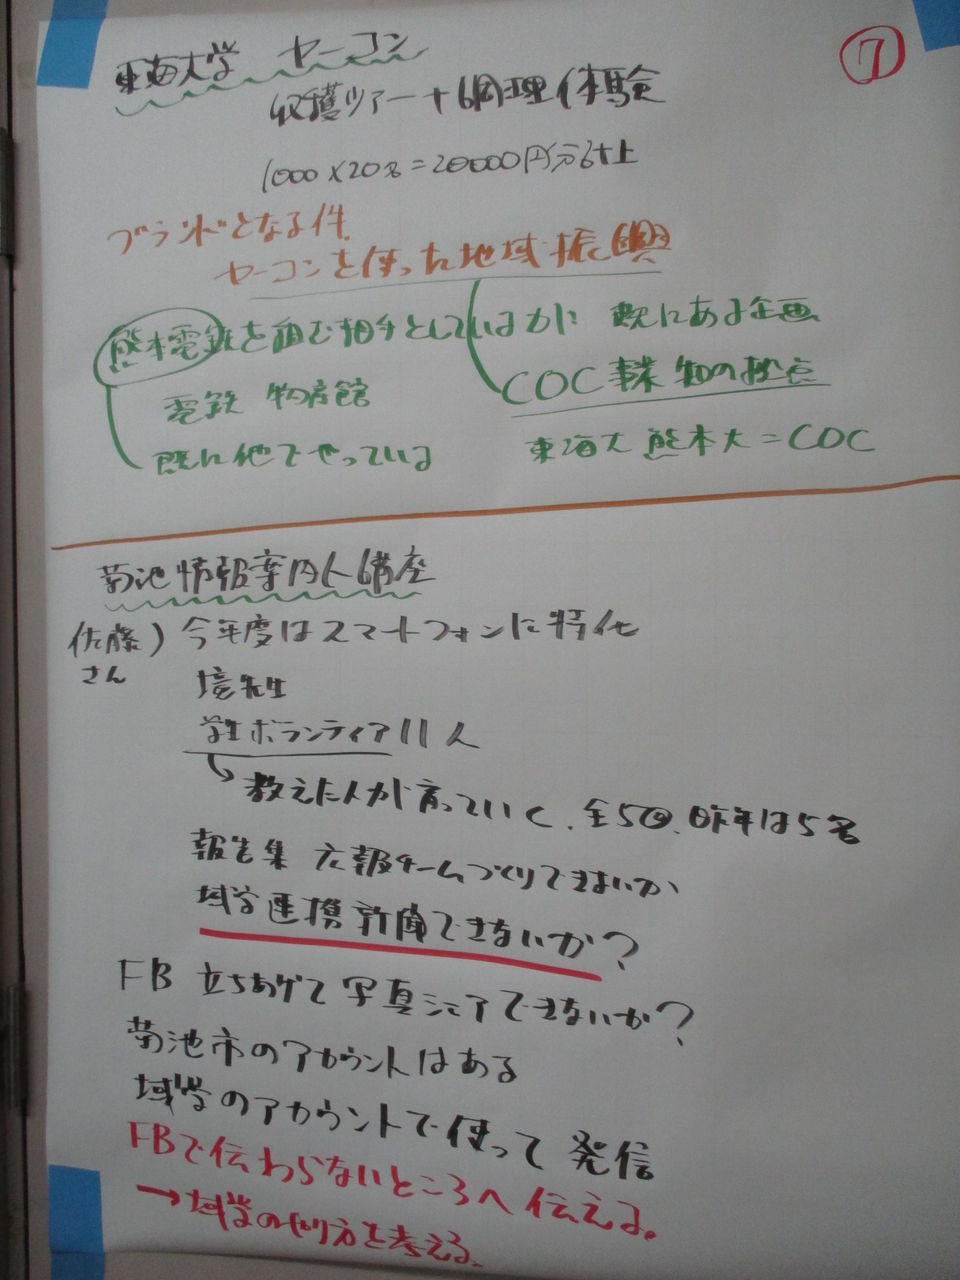 ⑦
東海大学 ヤーコン
収獲ツアー+調理体験
1000×20名=20000円分計上
ブランドとなる件
ヤーコンを使った地域振興
熊本電鉄を組む相手としているが 既にある企画
COC事業 知の拠点
電鉄 物産館
既に他でやっている
東海大 熊本大=COC
菊池情報案内人講座
佐藤さん) 今年度はスマートフォンに特化
境先生
学生ボランティア11人
教えた人が育っていく、全5回、昨年は5名
報告集 広報チームづくりできないか
域学連携新聞できないか?
FB 立ちあげて写真シェアできないか?
菊池市のアカウントはある
域学のアカウントで使って発信
FBで伝わらないところへ伝える。
→域学のやり方を考える。